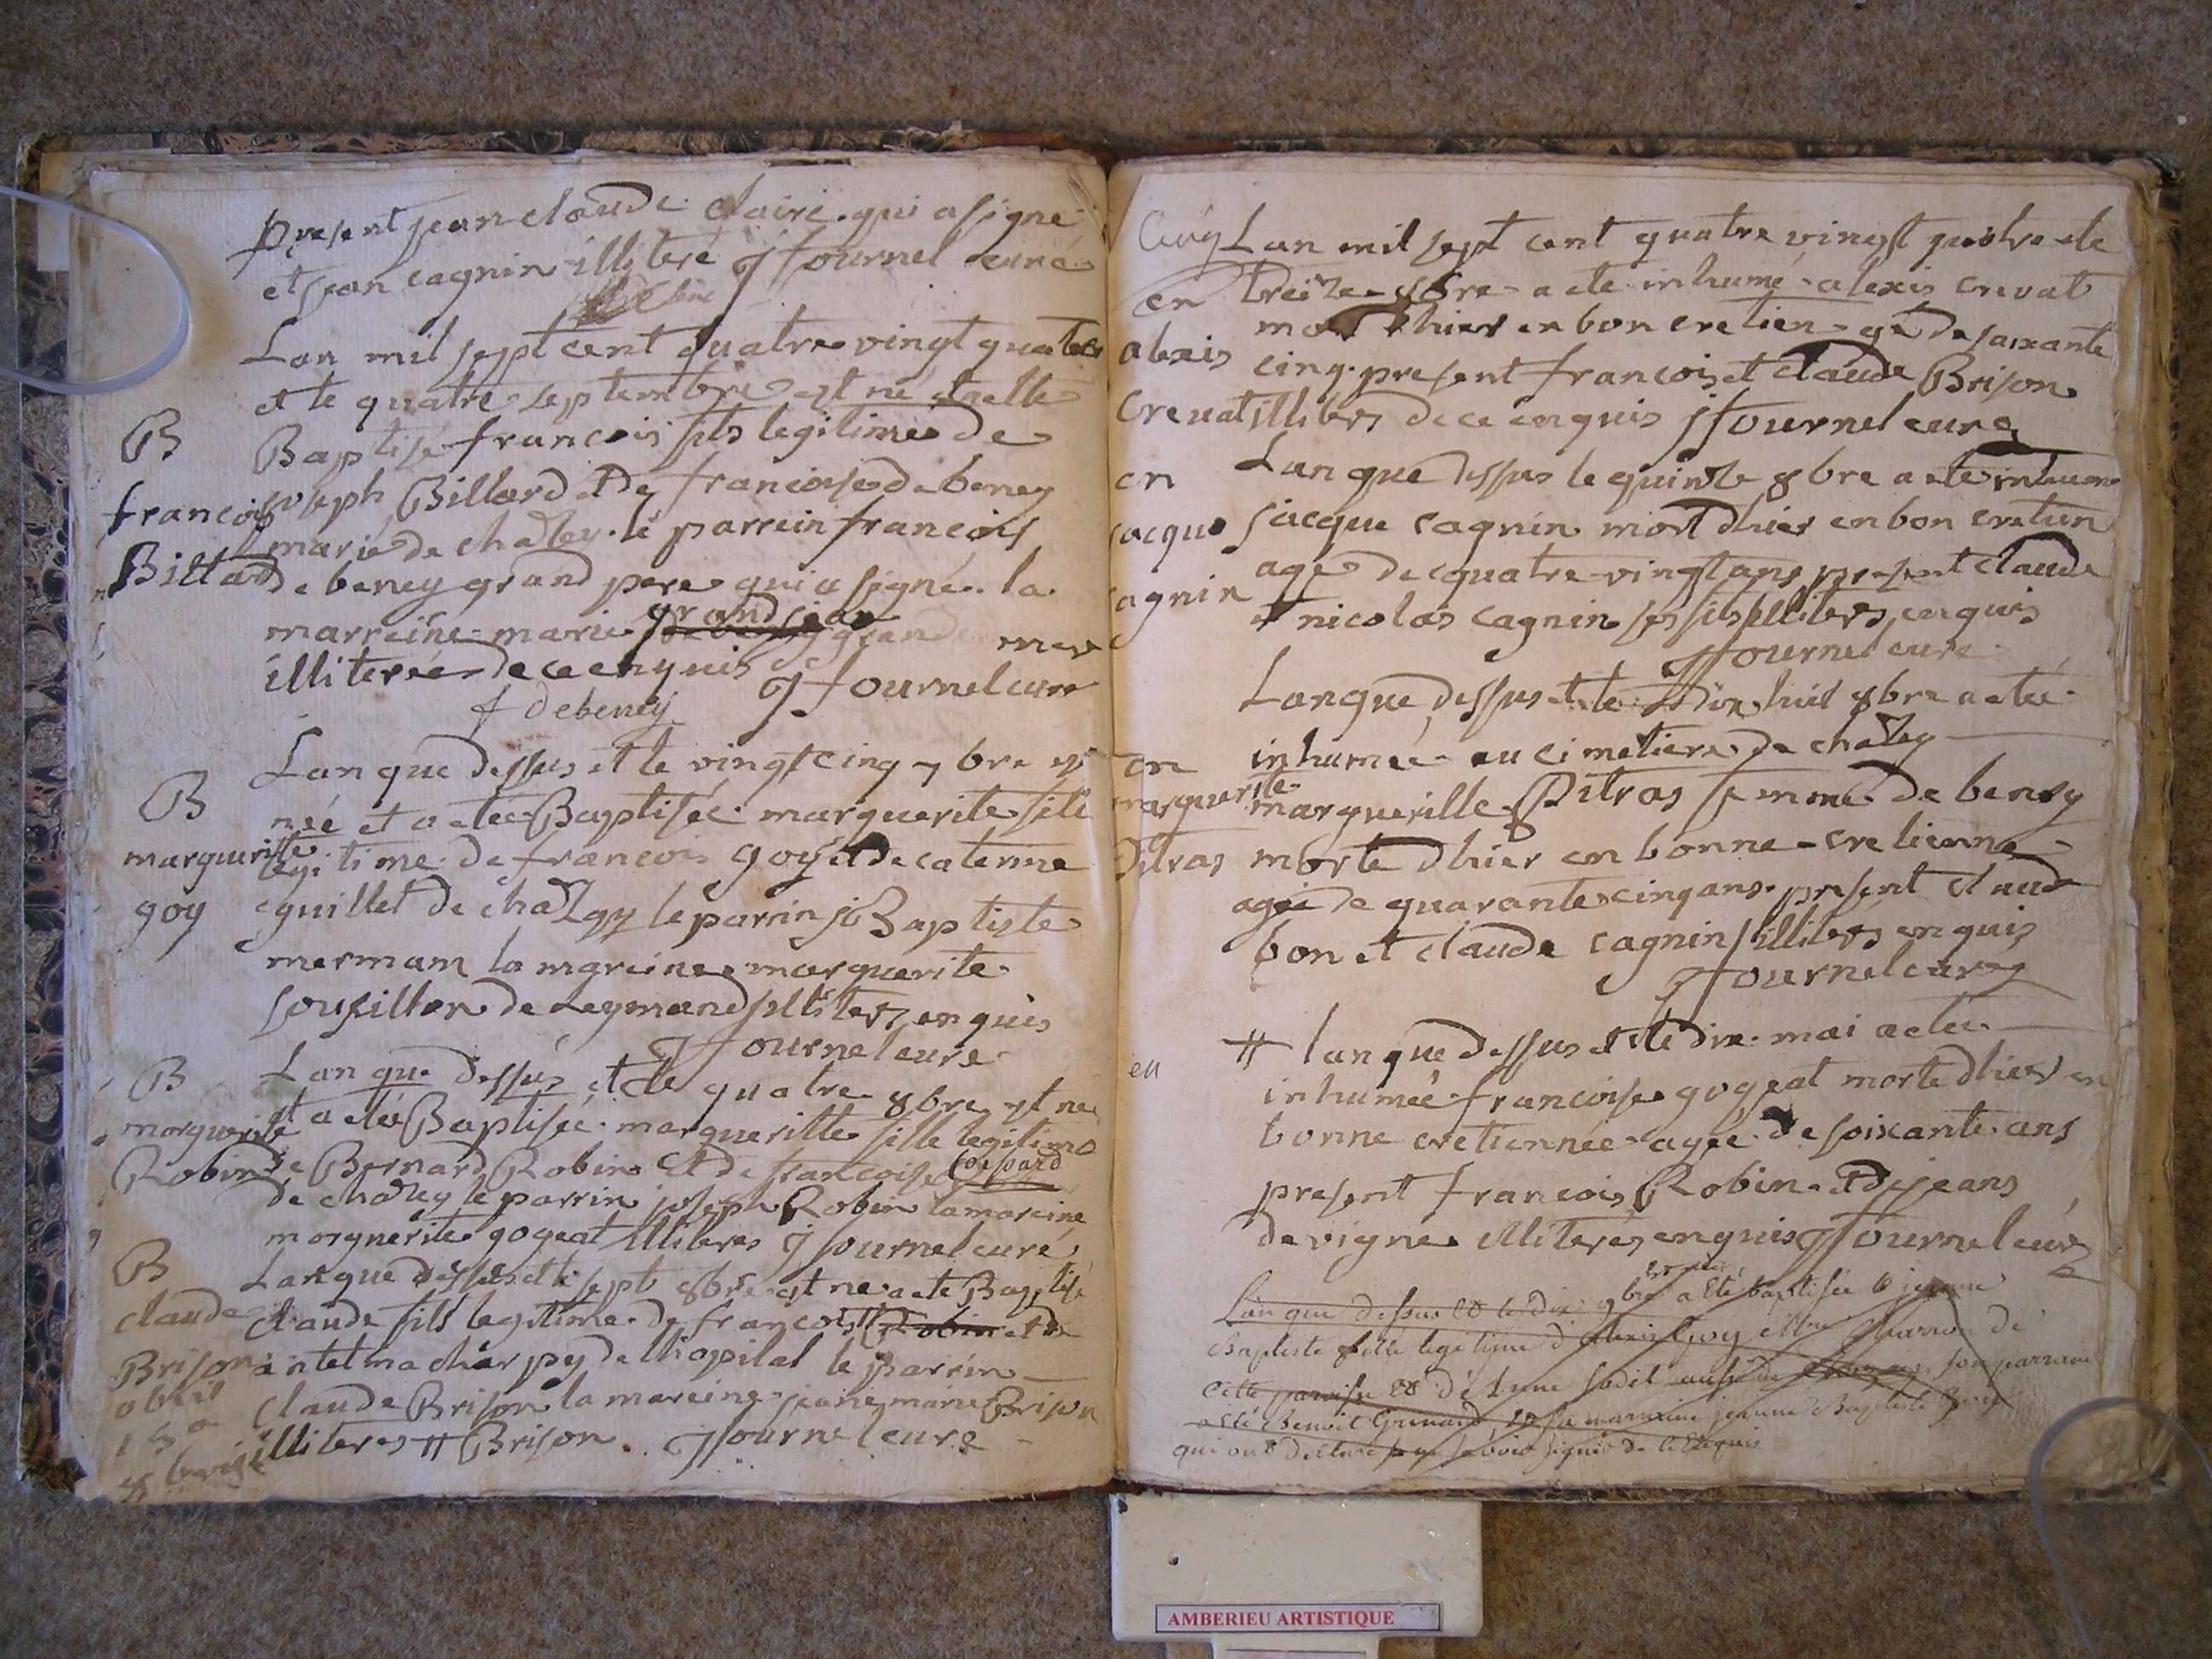 present jean claude claire qui a signe
et jean cagnin illiteré J fournel curé
Lan mil sept cent quatre vingt quatre
et le quatre septembre est né et a esté
B
Baptisé francois fils legitime de
francois
joseph Billard et de francoise debeney
marié de chaley le parrein francois
Billard
de beney grand pere qui a signé la
marreine marie grand jean
mere
illiterée de ce enquis J fournel cure
f debeney
Lan que dessus et le vingt cinq 7bre est
B
née et a etée Baptisée marguerite fille
marguerite
legitime de francois goy et de caterine
goy
guillet de chaley le parrin jB Baptiste
mermam la mareine marguerite
soufillon de Leymand illiters enquis
J fournel cure
B
Lan que dessus et le quatre 8bre est née
et a etée Baptisée marguerite fille legitime
marguerite
Robin
de Bernard Robin et de francoise
de chaley le parrin joseph Robin la mareine
marguerite gogeat illiteres J fournel curé
B
Lan que dessus et le sept 8bre est ne a ete Baptisé
claude
claude fils legitime de francois Robin et de
Brison
antelma charpy de lhopital le parrin
claude Brison la mareine jeane marie Brison
illiteres # Brison J fournel cure
Lan mil sept cent quatre vingt quatre et le
en
treize 8bre a ete inhumé alexis crevat
alexis
mort dhier en bon cretien agé de soixante
cinq present francois et claude Brison
Crevat
illiters de ce enquis J fournel cure
en
Lan que dessus le quinze 8bre a ete inhumé
jacque
jacque cagnin mort dhier en bon cretien
agé de quatre vingt ans present claude
cagnin
et nicolas cagnin ses fils illiters enquis
J fournel cure
Lan que dessus et le Dix huit 8bre a eteé
en
inhumeé au cimetiere de chaley
marguerite
marguerille Ditras femme de beney
Ditras
morte dhier en bonne cretienne
ageé de quarante cinq ans present claude
bon et claude cagnin illiters enquis
J fournel cure
en
# lan que dessus et le dix mai a eteé
inhumée francoise gogeat morte dhier en
bonne cretiennée agée de soixante ans
present francois Robin et de jeans
de vigne illiterés enquis J fournel curé
Lan que dessus et le dix 9bre a été baptisée jeanne
Baptiste fille legitime d alexis Goy et de
cette paroisse et
a été Benoit Grinand et sa marraine jeanne Baptiste
qui ont declaré ne savoir signer de ce enquis
AMBERIEU ARTISTIQUE